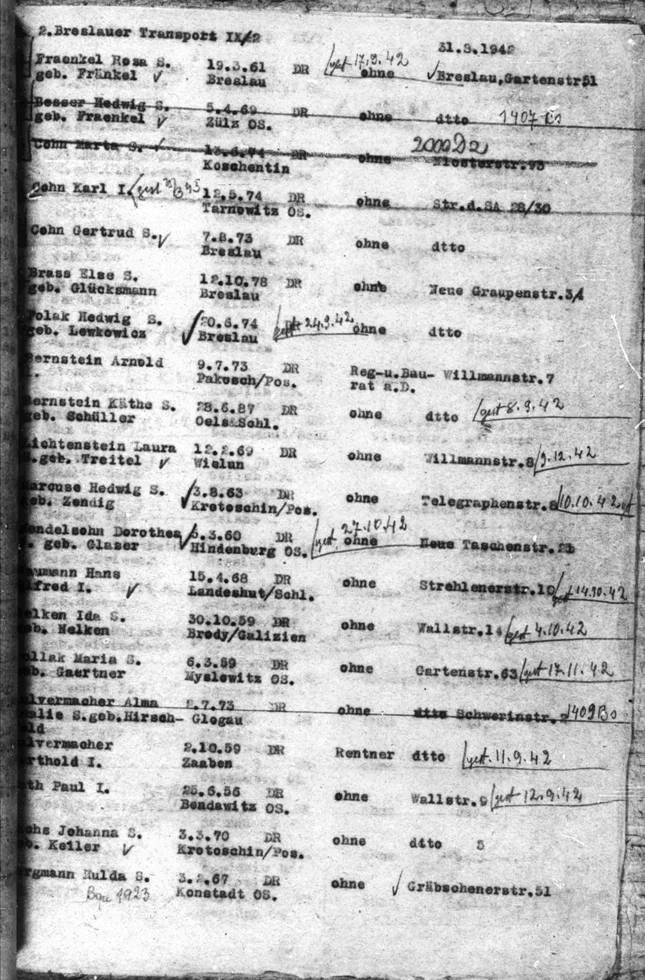 2.Breslauer Transport IX/2
31.8.1942
Fraenkel Rosa S. 19.3.61 DR gest 17.9.42 ohne Breslau,Gartenstr.51
geb. Fränkel Breslau
Besser Hedwig S. 5.4.69 DR ohne dtto
geb. Fraenkel Zülz OS.
Cohn Marta S. 13.6.74 DR ohne Klosterstr.93
Koschentin
Cohn Karl I. 12.5.74 DR ohne Str.d.SA 28/30
Tarnowitz OS.
Cohn Gertrud S. 7.8.73 DR ohne dtto
Breslau
Brass Else S. 12.10.78 DR ohne Neue Graupenstr.3/4
geb. Glücksmann Breslau
Polak Hedwig S. 20.6.74 DR gest 24.9.42 ohne dtto
geb. Lewkowicz Breslau
ernstein Arnold 9.7.73 DR Reg-u.Bau- Willmannstr.7
Pakosch/Pos. rat a.D.
ernstein Käthe S. 28.6.87 DR ohne dtto gest 8.9.42
geb. Schüller Oels Schl.
ichtenstein Laura 12.2.69 DR ohne Willmannstr.8 9.12.42
.geb. Treitel Wielun
arcuse Hedwig S. 3.8.63 DR ohne Telegraphenstr. 10.10.42
eb. Zendig Krotoschin/Pos.
endelsohn Dorothea 5.3.60 DR gest. 27.10.42 ohne Neue Taschenstr.
. geb. Glaser Hindenburg OS.
aumann Hans 15.4.68 DR ohne Strehlenerstr.10 gest 14.10.42
lfred I. Landeshut/Schl.
elken Ida S. 30.10.59 DR ohne Wallstr.14 gest 4.10.42
eb. Nelken Brody/Galizien
ollak Maria S. 6.3.59 DR ohne Gartenstr.63 gest 17.11.42
eb. Gaertner Myslowitz OS.
lvermacher Alma 2.7.73 DR ohne dtto Schwerinstr.
alie S.geb.Hirsch- Glogau
ld
lvermacher 2.10.59 DR Rentner dtto gest. 11.9.42
rthold I. Zaaben
th Paul I. 25.6.56 DR ohne Wallstr.9 gest 12.9.42
Bendawitz OS.
chs Johanna S. 3.3.70 DR ohne dtto 5
b. Keiler Krotoschin/Pos.
rgmann Hulda S. 3.2.67 DR ohne Gräbschenerstr.51
Konstadt OS.